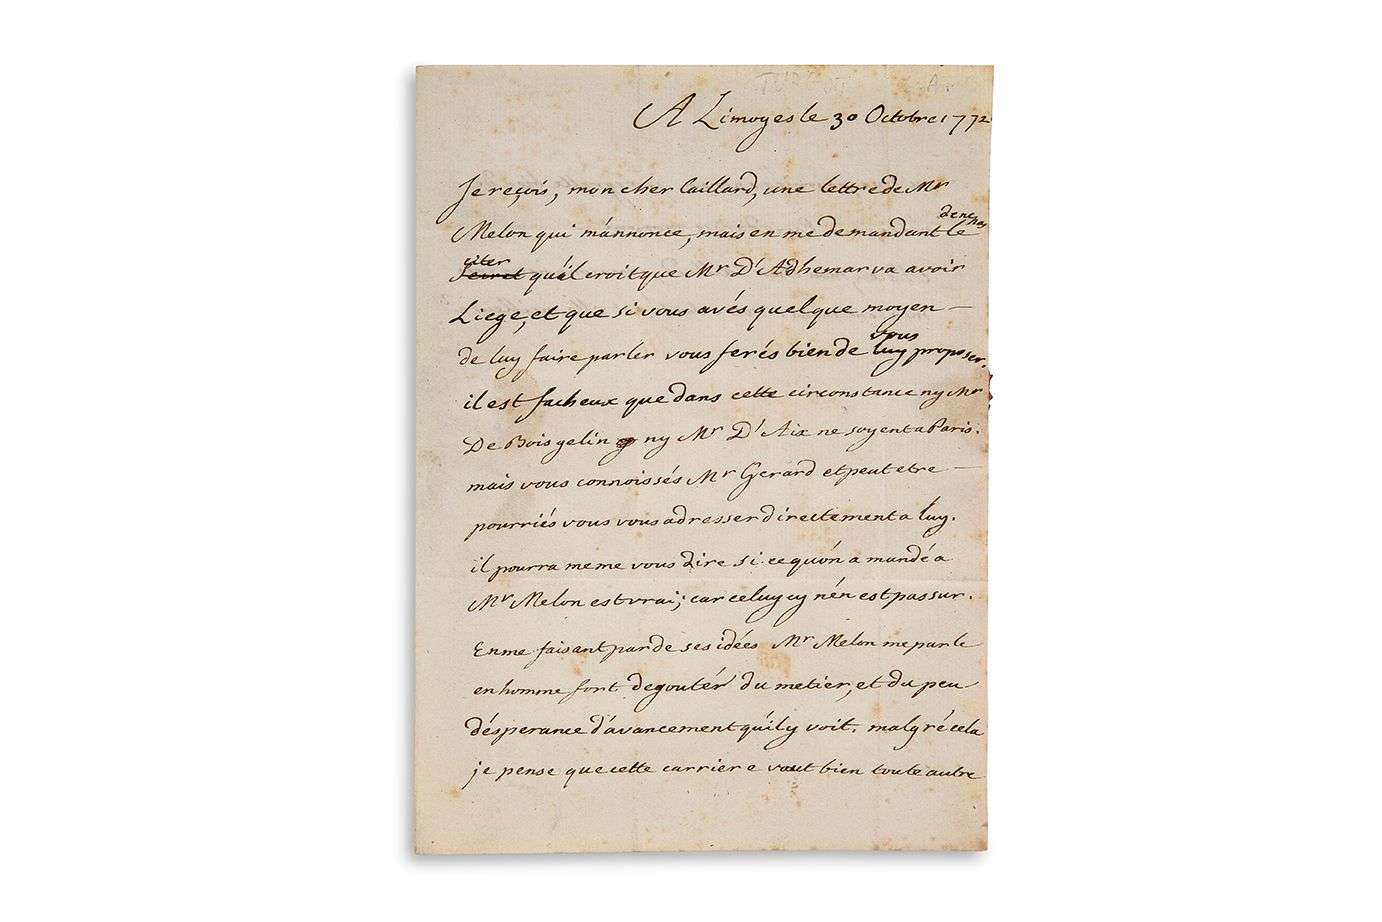 A Limoges le 30 Octobre 1772
Je reçois, mon cher Caillard, une lettre de Mr
Melon qui m'annonce, mais en me demandant de ne pas le
citer qu'il croit que Mr D'Adhemar va avoir
Liege, et que si vous avés quelque moyen —
de luy faire parler vous ferés bien de vous luy proposer.
il est facheux que dans cette circonstance ny Mr
De Boisgelin ny Mr D'Aix ne soyent a Paris.
mais vous connoissés Mr Gerard et peut etre —
pourriés vous vous adresser directement a luy.
il pourra meme vous dire si ce qu'on a mandé a
Mr Melon est vrai; car celuy cy n'en est pas sur.
En me faisant par de ses idées Mr Melon me parle
en homme fort degouté du metier, et du peu
d'esperance d'avancement qu'il y voit. malgré cela
je pense que cette carriere vaut bien toute autre